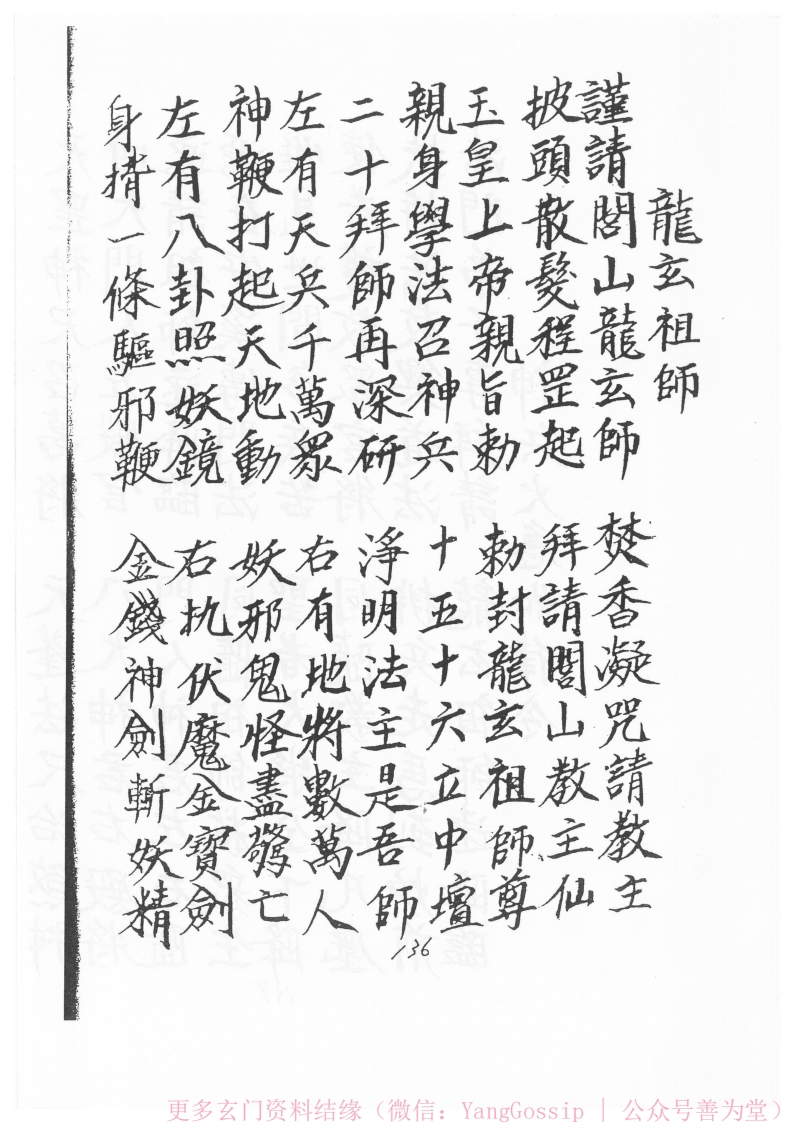 龍玄祖師
謹請閭山龍玄師 焚香凝咒請教主
披頭散髮程罡起 拜請閭山教主仙
玉皇上帝親旨勅 勅封龍玄祖師尊
親身學法召神兵 十五十六立中壇
二十拜師再深研 淨明法主是吾師
左有天兵千萬眾 右有地將數萬人
神鞭打起天地動 妖邪鬼怪盡驚亡
左有八卦照妖鏡 右執伏魔金寶劍
身揹一條驅邪鞭 金錢神劍斬妖精
136
更多玄门资料结缘（微信：YangGossip | 公众号善为堂）